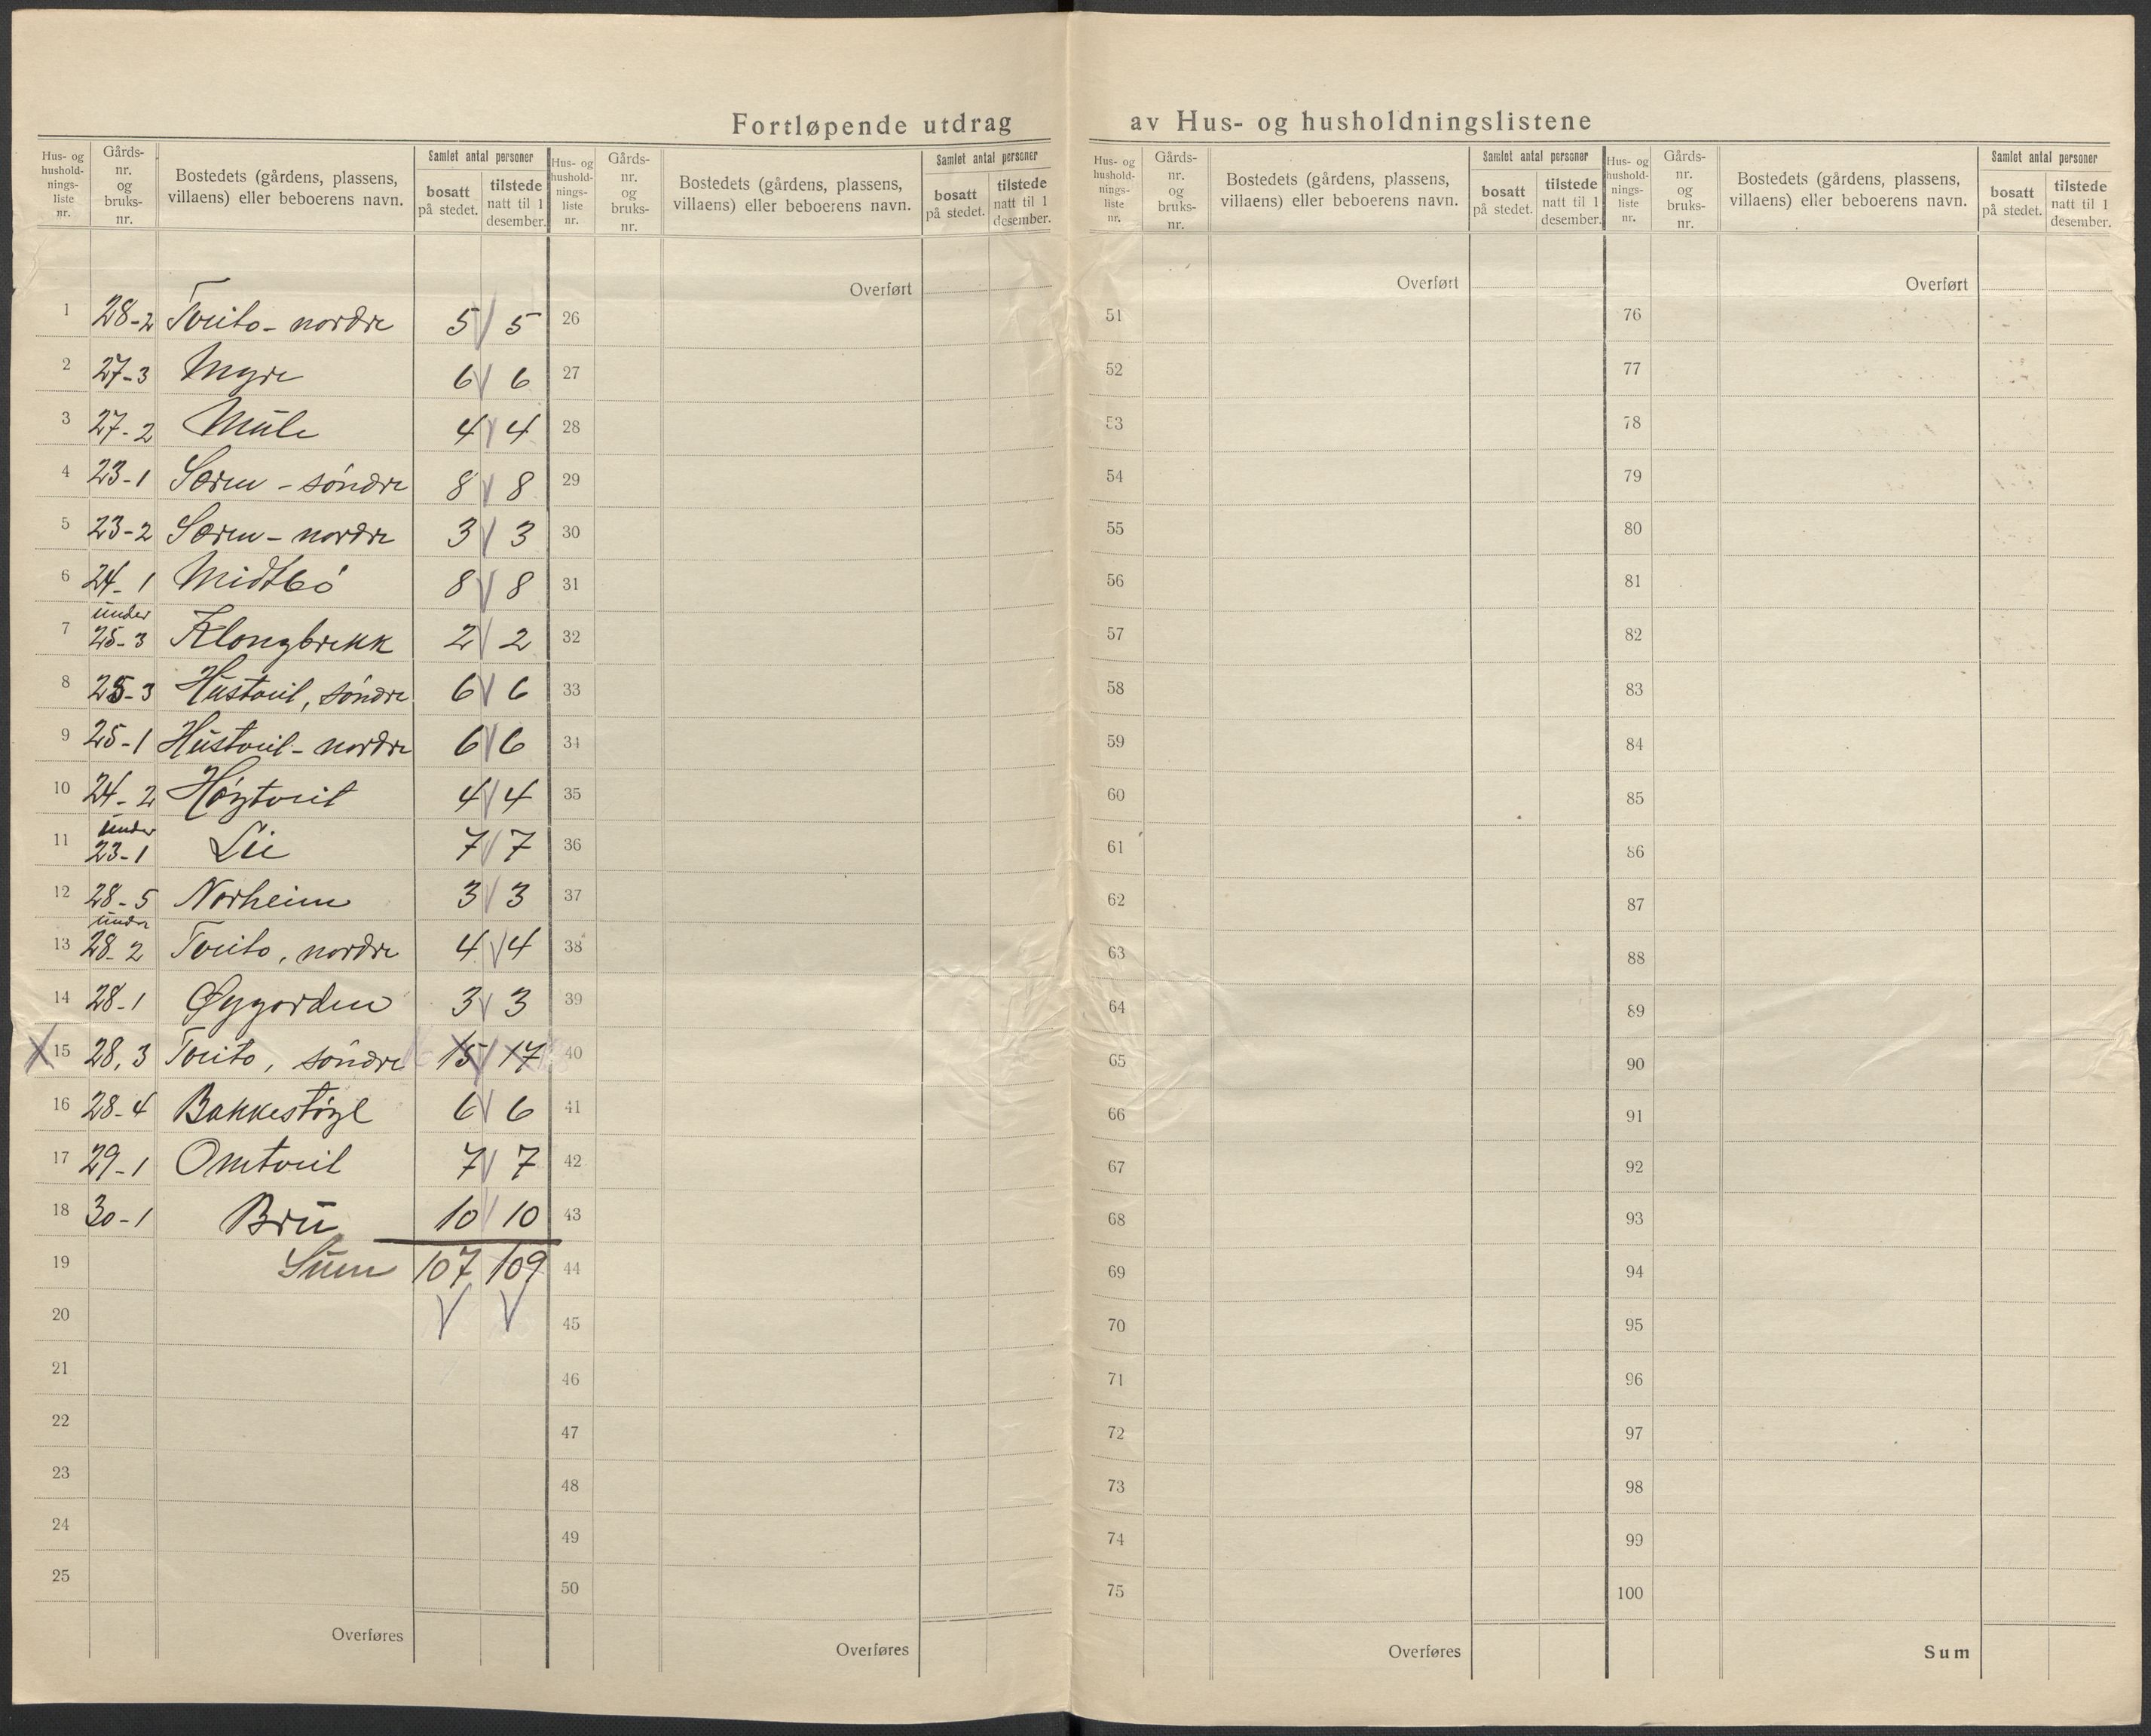 Fortløpende utdrag av Hus- og husholdningslistene
Hus- og hushold-nings-liste nr. Gårds-nr. og bruks-nr. Bostedets (gårdens, plassens, villaens) eller beboerens navn. Samlet antal personer bosatt på stedet. tilstede natt til 1 desember.
Hus- og hushold-nings-liste nr. Gårds-nr. og bruks-nr. Bostedets (gårdens, plassens, villaens) eller beboerens navn. Samlet antal personer bosatt på stedet. tilstede natt til 1 desember.
Hus- og hushold-nings-liste nr. Gårds-nr. og bruks-nr. Bostedets (gårdens, plassens, villaens) eller beboerens navn. Samlet antal personer bosatt på stedet. tilstede natt til 1 desember.
Hus- og hushold-nings-liste nr. Gårds-nr. og bruks-nr. Bostedets (gårdens, plassens, villaens) eller beboerens navn. Samlet antal personer bosatt på stedet. tilstede natt til 1 desember.
1 28-2 Tveito - nordre 5 5
2 27-3 Myre 6 6
3 27-2 Mule 4 4
4 23-1 Søren - söndre 8 8
5 23-2 Søren - nordre 3 3
6 24-1 Midtbö 8 8
7 under 25-3 Klongbrekk 2 2
8 25-3 Hustveit, söndre 6 6
9 25-1 Hustveit - nordre 6 6
10 24-2 Högtveit 4 4
11 under 23-1 Lie 7 7
12 28-5 Norheim 3 3
13 under 28-2 Tveito, nordre 4 4
14 28-1 Øygorden 3 3
15 28,3 Tveito, söndre 15 17
16 28-4 Bakkestögl 6 6
17 29-1 Omtveit 7 7
18 30-1 Bru 10 10
19 Sum 107 109
20
21
22
23
24
25
Overføres
Overført
26
27
28
29
30
31
32
33
34
35
36
37
38
39
40
41
42
43
44
45
46
47
48
49
50
Overføres
Overført
51
52
53
54
55
56
57
58
59
60
61
62
63
64
65
66
67
68
69
70
71
72
73
74
75
Overføres
Overført
76
77
78
79
80
81
82
83
84
85
86
87
88
89
90
91
92
93
94
95
96
97
98
99
100
Sum